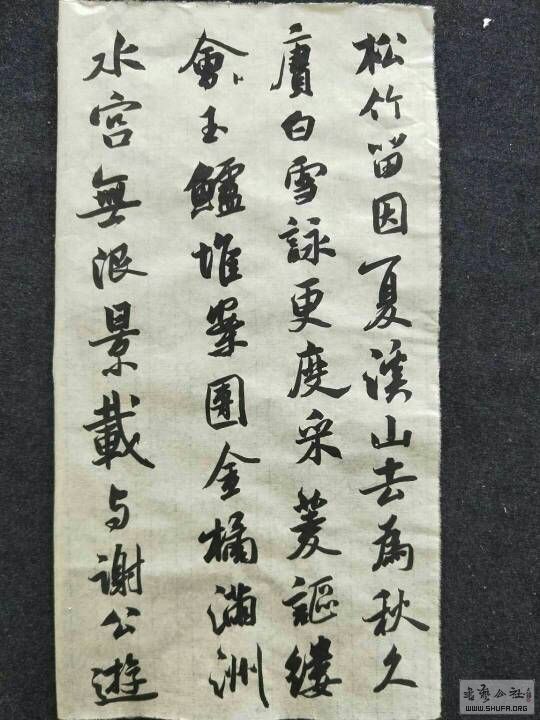 松竹留因夏溪山去為秋久
賡白雪詠更度采菱謳縷
會玉鱸堆案團金橘滿洲
水宮無限景載与謝公遊
WWW.SHUFA.ORG